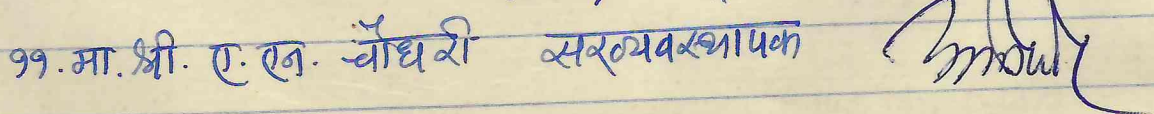 ११. मा. श्री. ए. एन. चौधरी सरव्यवस्थापक